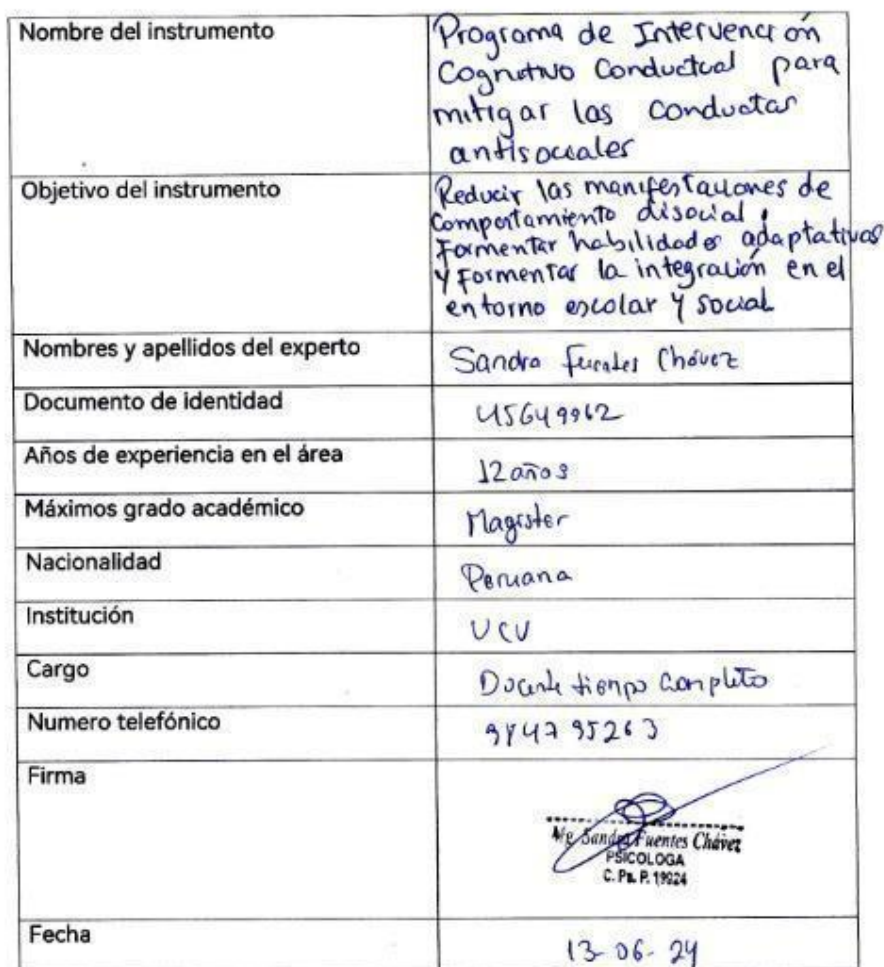 Nombre del instrumento
Programa de Intervención
Cognitivo Conductual para
mitigar las conductas
antisociales
Objetivo del instrumento
Reducir las manifestaciones de
comportamiento disocial,
Formentar habilidades adaptativas
y Formentar la integración en el
entorno escolar y social
Nombres y apellidos del experto
Sandra Fuentes Chávez
Documento de identidad
45649962
Años de experiencia en el área
12 años
Máximos grado académico
Magister
Nacionalidad
Peruana
Institución
UCV
Cargo
Docente tiempo completo
Numero telefónico
984795263
Firma
Mg. Sandra Fuentes Chávez
PSICOLOGA
C. Ps. P. 19924
Fecha
13-06-24